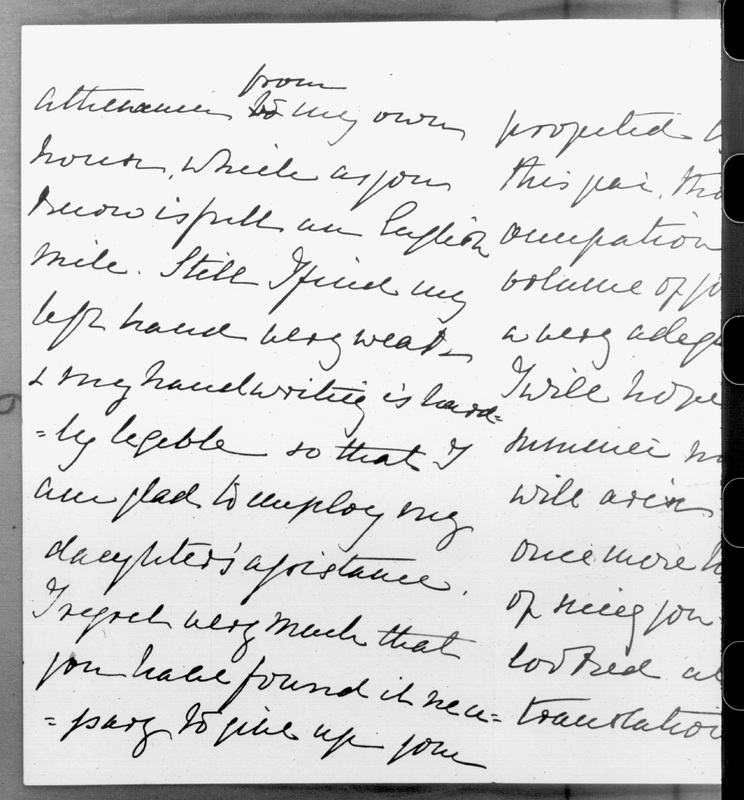 Athenaeum from
to my own
house, which as you
know is full an English
mile. Still I find my
left hand very weak
& my handwriting is hard=
=ly legible so that I
am glad to employ my
daughter's assistance.
I regret very much that
you have found it nec=
=ssary to give up your
projected
this
occupation
volume of
a very
I will hope
summer
will arise
once more
of seeing you.
looked at
translation